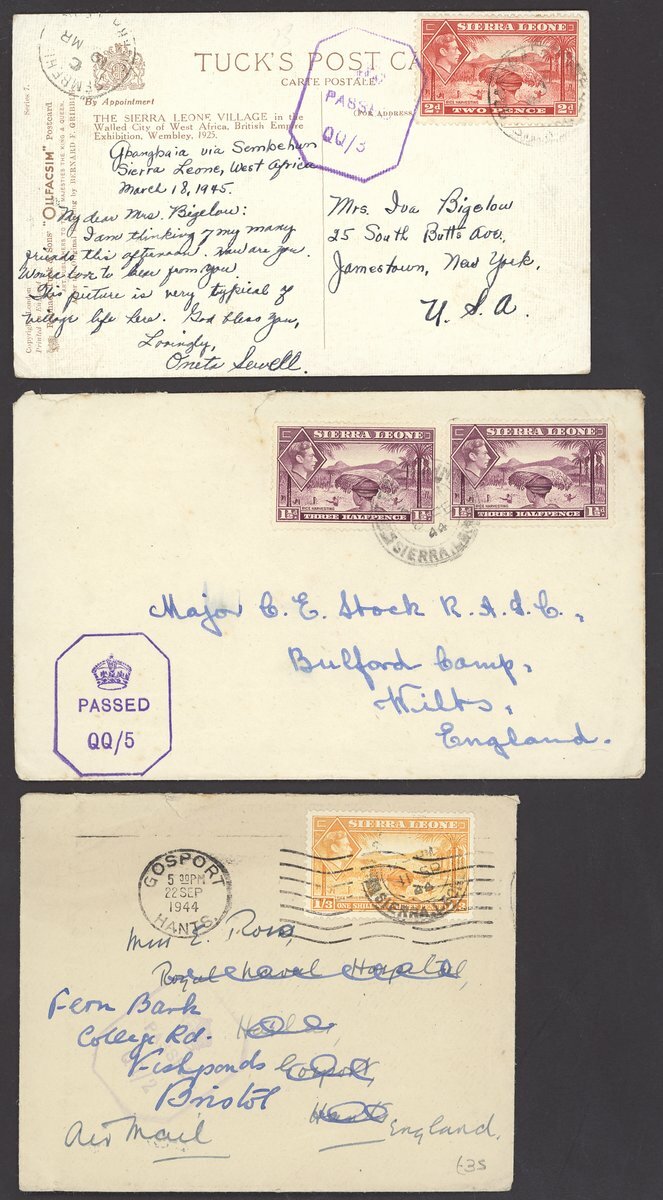 TUCK'S POST CA
CARTE POSTALE
By Appointment
(FOR ADDRESS
THE SIERRA LEONE VILLAGE in the
Walled City of West Africa, British Empire
Exhibition, Wembley, 1925.
Series 7.
"OILFACSIM" Postcard
SIERRA LEONE
RICE HARVESTING
2d TWO PENCE 2d
PASSED
QQ/3
via Sembehun
Sierra Leone, West Africa
March 18, 1945.
My dear Mrs. Bigelow:
I am thinking of my many
friends this afternoon. How are you.
Would love to hear from you.
This picture is very typical of
village life here. God bless you,
Lovingly,
Oneta Sewell.
Mrs. Iva Bigelow
25 South Butts Ave.
Jamestown, New York,
U. S. A.
SIERRA LEONE
RICE HARVESTING
1½d THREE HALFPENCE 1½d
SIERRA LEONE
RICE HARVESTING
1½d THREE HALFPENCE 1½d
44
SIERRA LEO
Major C. E. Stock R. A. S. C.,
Bulford Camp,
Wilts,
England.
PASSED
QQ/5
SIERRA LEONE
1/3 ONE SHILL
44
SIERRA LEO
GOSPORT
5 30PM
22 SEP
1944
HANTS.
Miss E. Ross,
Royal Naval Hospital,
Fern Bank
College Rd.
Fishponds Gosport,
Bristol Hants
PASSED
QQ/2
Air Mail
England.
£35